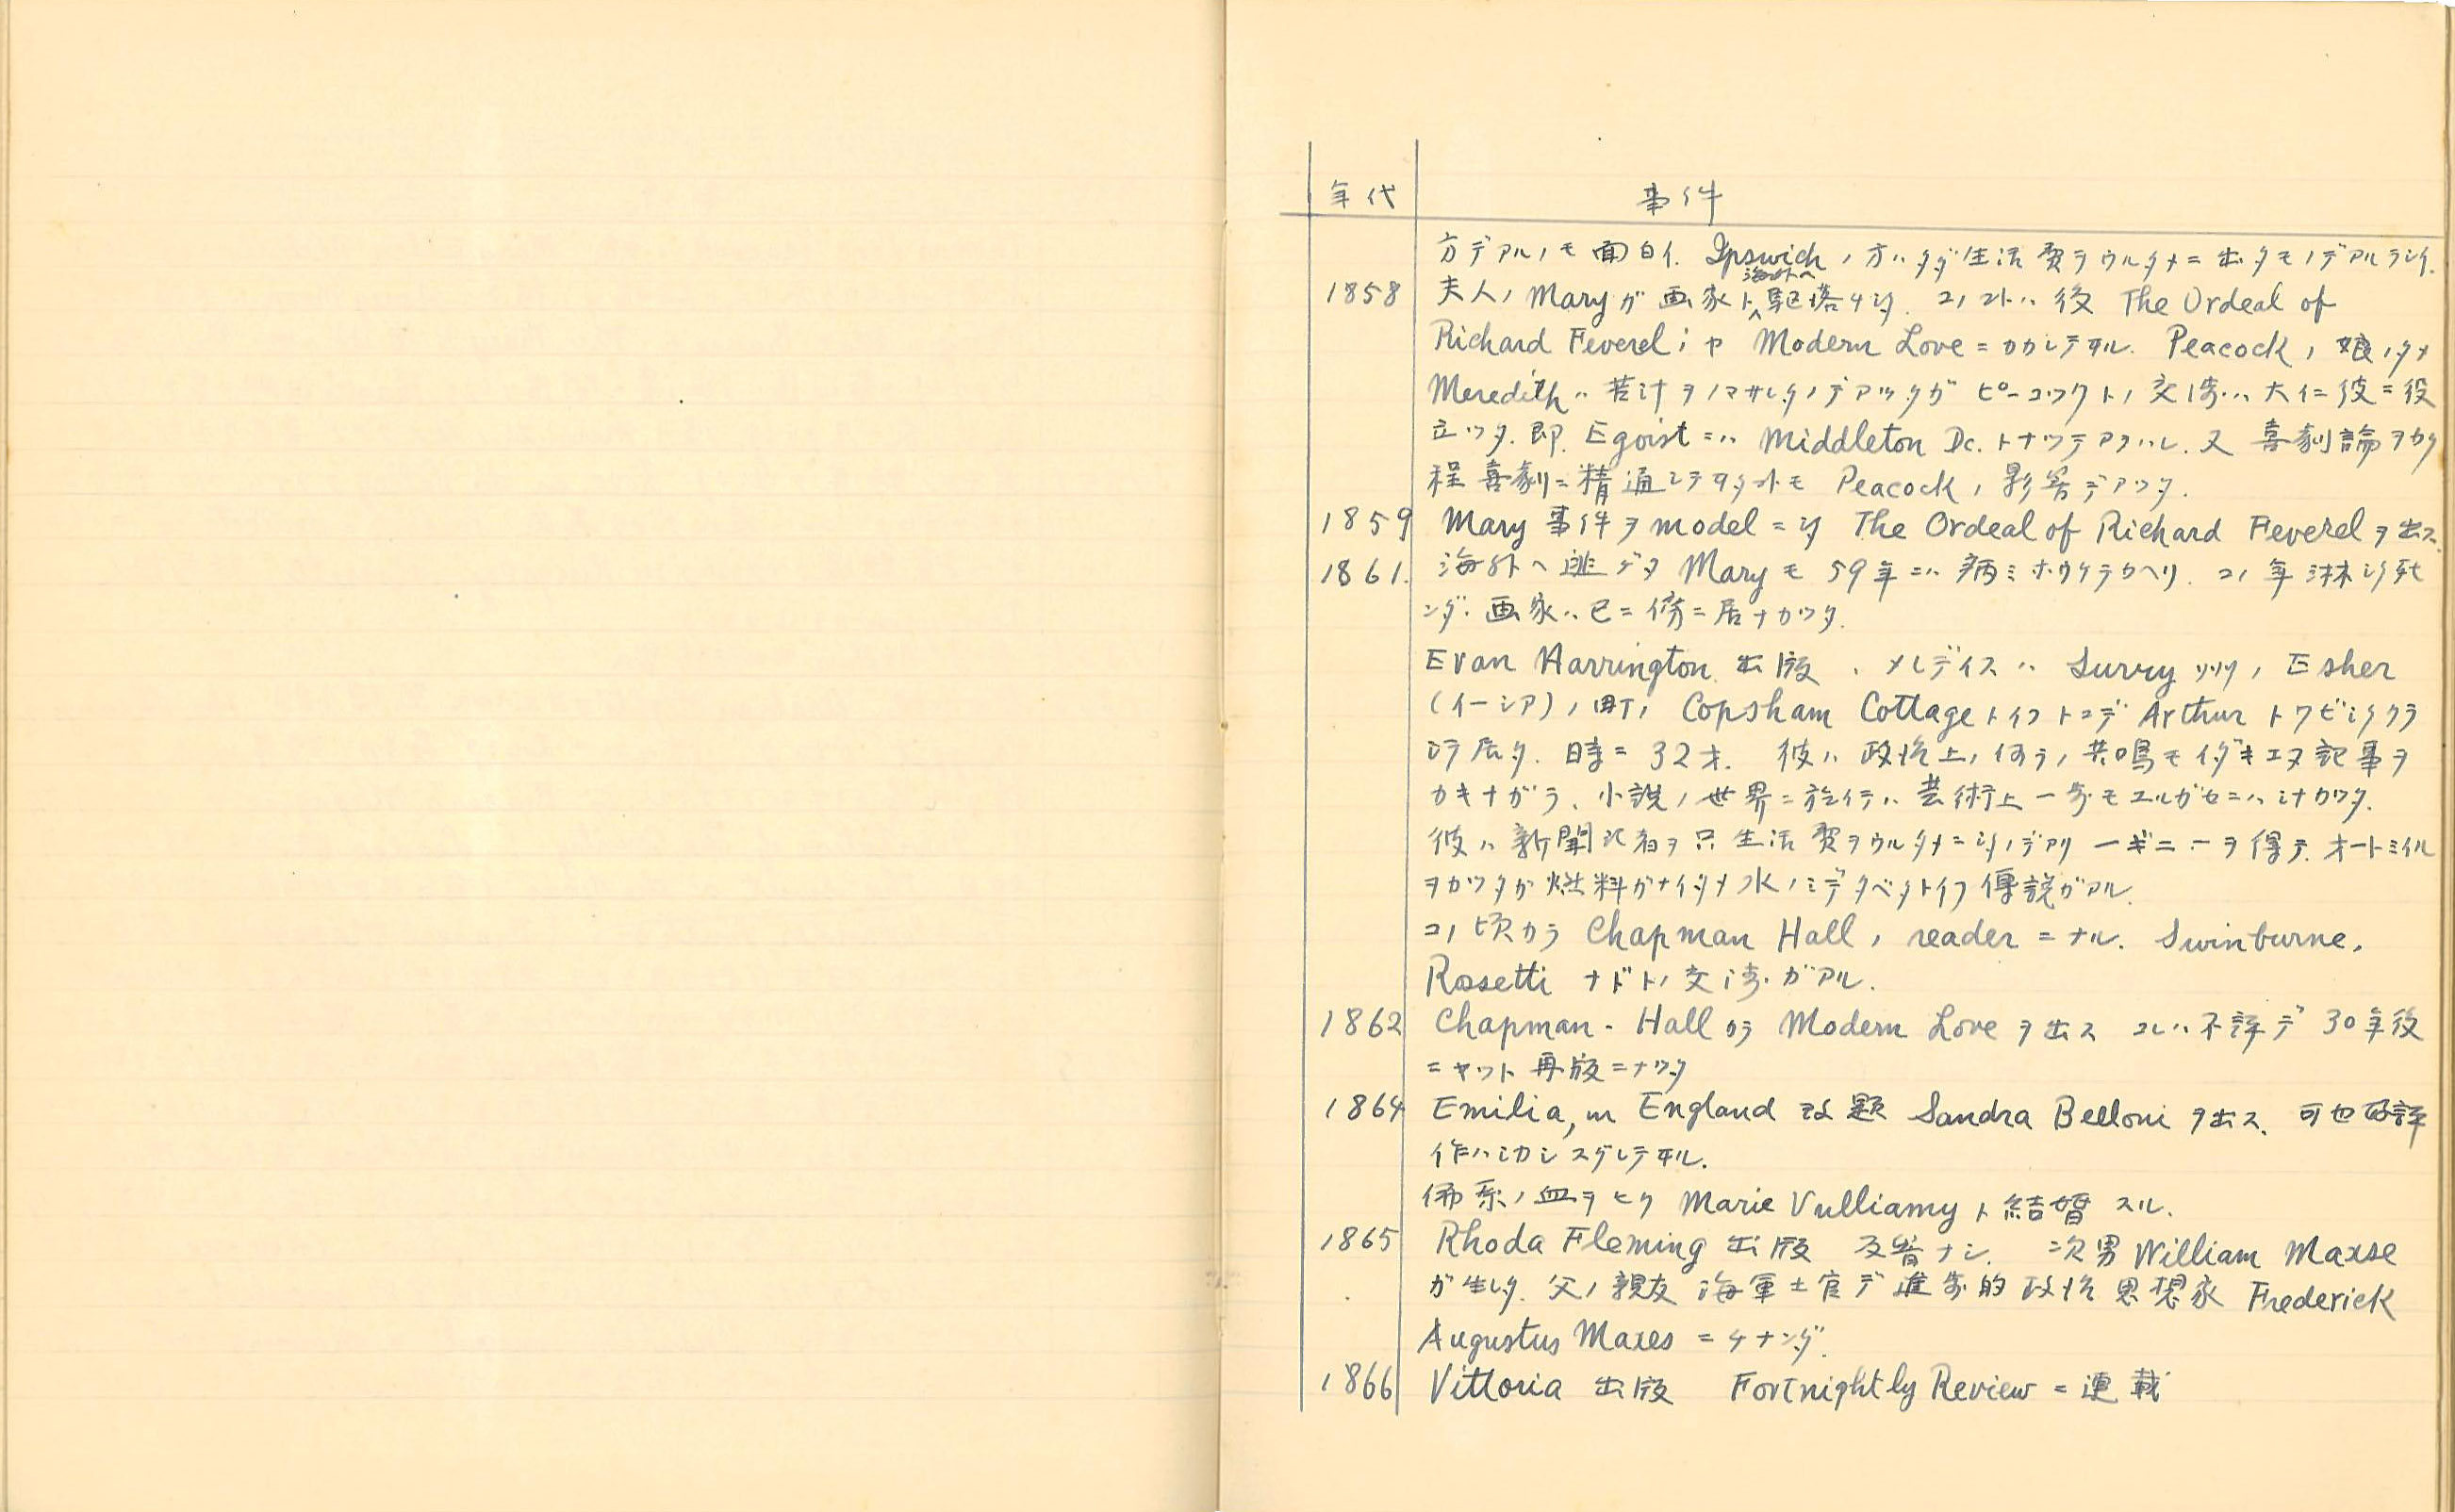 年代 事件
方デアルノモ面白イ. Ipswichノ方ハタダ生活費ヲウルタメニ出タモノデアルラシイ.
海外へ
1858 夫人ノMaryガ画家ト駆落チシタ. コノコトハ後 The Ordeal of
Richard Feverel; ヤ Modern Love ニカカレテヰル. Peacockノ娘ノタメ
Meredithハ苦汁ヲノマサレタノデアツタガ ピーコックトノ交渉ハ大イニ彼ニ役
立ツタ. 即 Egoist ニハ Middleton Dc. トナツテアラハレ. 又喜劇論ヲカク
程喜劇ニ精通シテヰタコトモ Peacockノ影響デアツタ.
1859 Mary事件ヲ model ニシタ The Ordeal of Richard Feverel ヲ出ス.
1861. 海外ヘ逃ゲタ Mary モ 59年ニハ病ミホウケテカヘリ. コノ年淋シク死
ンダ. 画家ハ已ニ傍ニ居ナカツタ.
Evan Harrington 出版 . メレディスハ Surry州ノ Esher
(イーシア)ノ町ノ Copsham Cottage トイフトコデ Arthur トワビシクラ
シテ居タ. 時ニ 32才. 彼ハ政治上ノ何ラノ共鳴モイダキエヌ記事ヲ
カキナガラ、小説ノ世界ニ於イテハ芸術上一歩モユルガセニハシナカツタ.
彼ハ新聞記者ヲ只生活費ヲウルタメニシタノデアリ 一ギニーヲ得テ. オートミイル
ヲカツタガ燃料ガナイタメ水ノミデタベタトイフ傳説ガアル.
コノ頃カラ Chapman Hallノ reader ニナル. Swinburne,
Rossetti ナドトノ交渉ガアル.
1862 Chapman - Hall カラ Modern Love ヲ出ス コレハ不評デ 30年後
ニヤツト再版ニナツタ
1864 Emilia, in England 改題 Sandra Belloni ヲ出ス. 可也好評
作ハシカシスグレテヰル.
佛系ノ血ヲヒク Marie Vulliamy ト結婚スル.
1865 Rhoda Fleming 出版 反響ナシ. 次男 William Maxse
ガ生レタ. 父ノ親友 海軍士官デ進歩的政治思想家 Frederick
Augustus Maxes ニチナンダ.
1866 Vittoria 出版 Fortnightly Review ニ連載